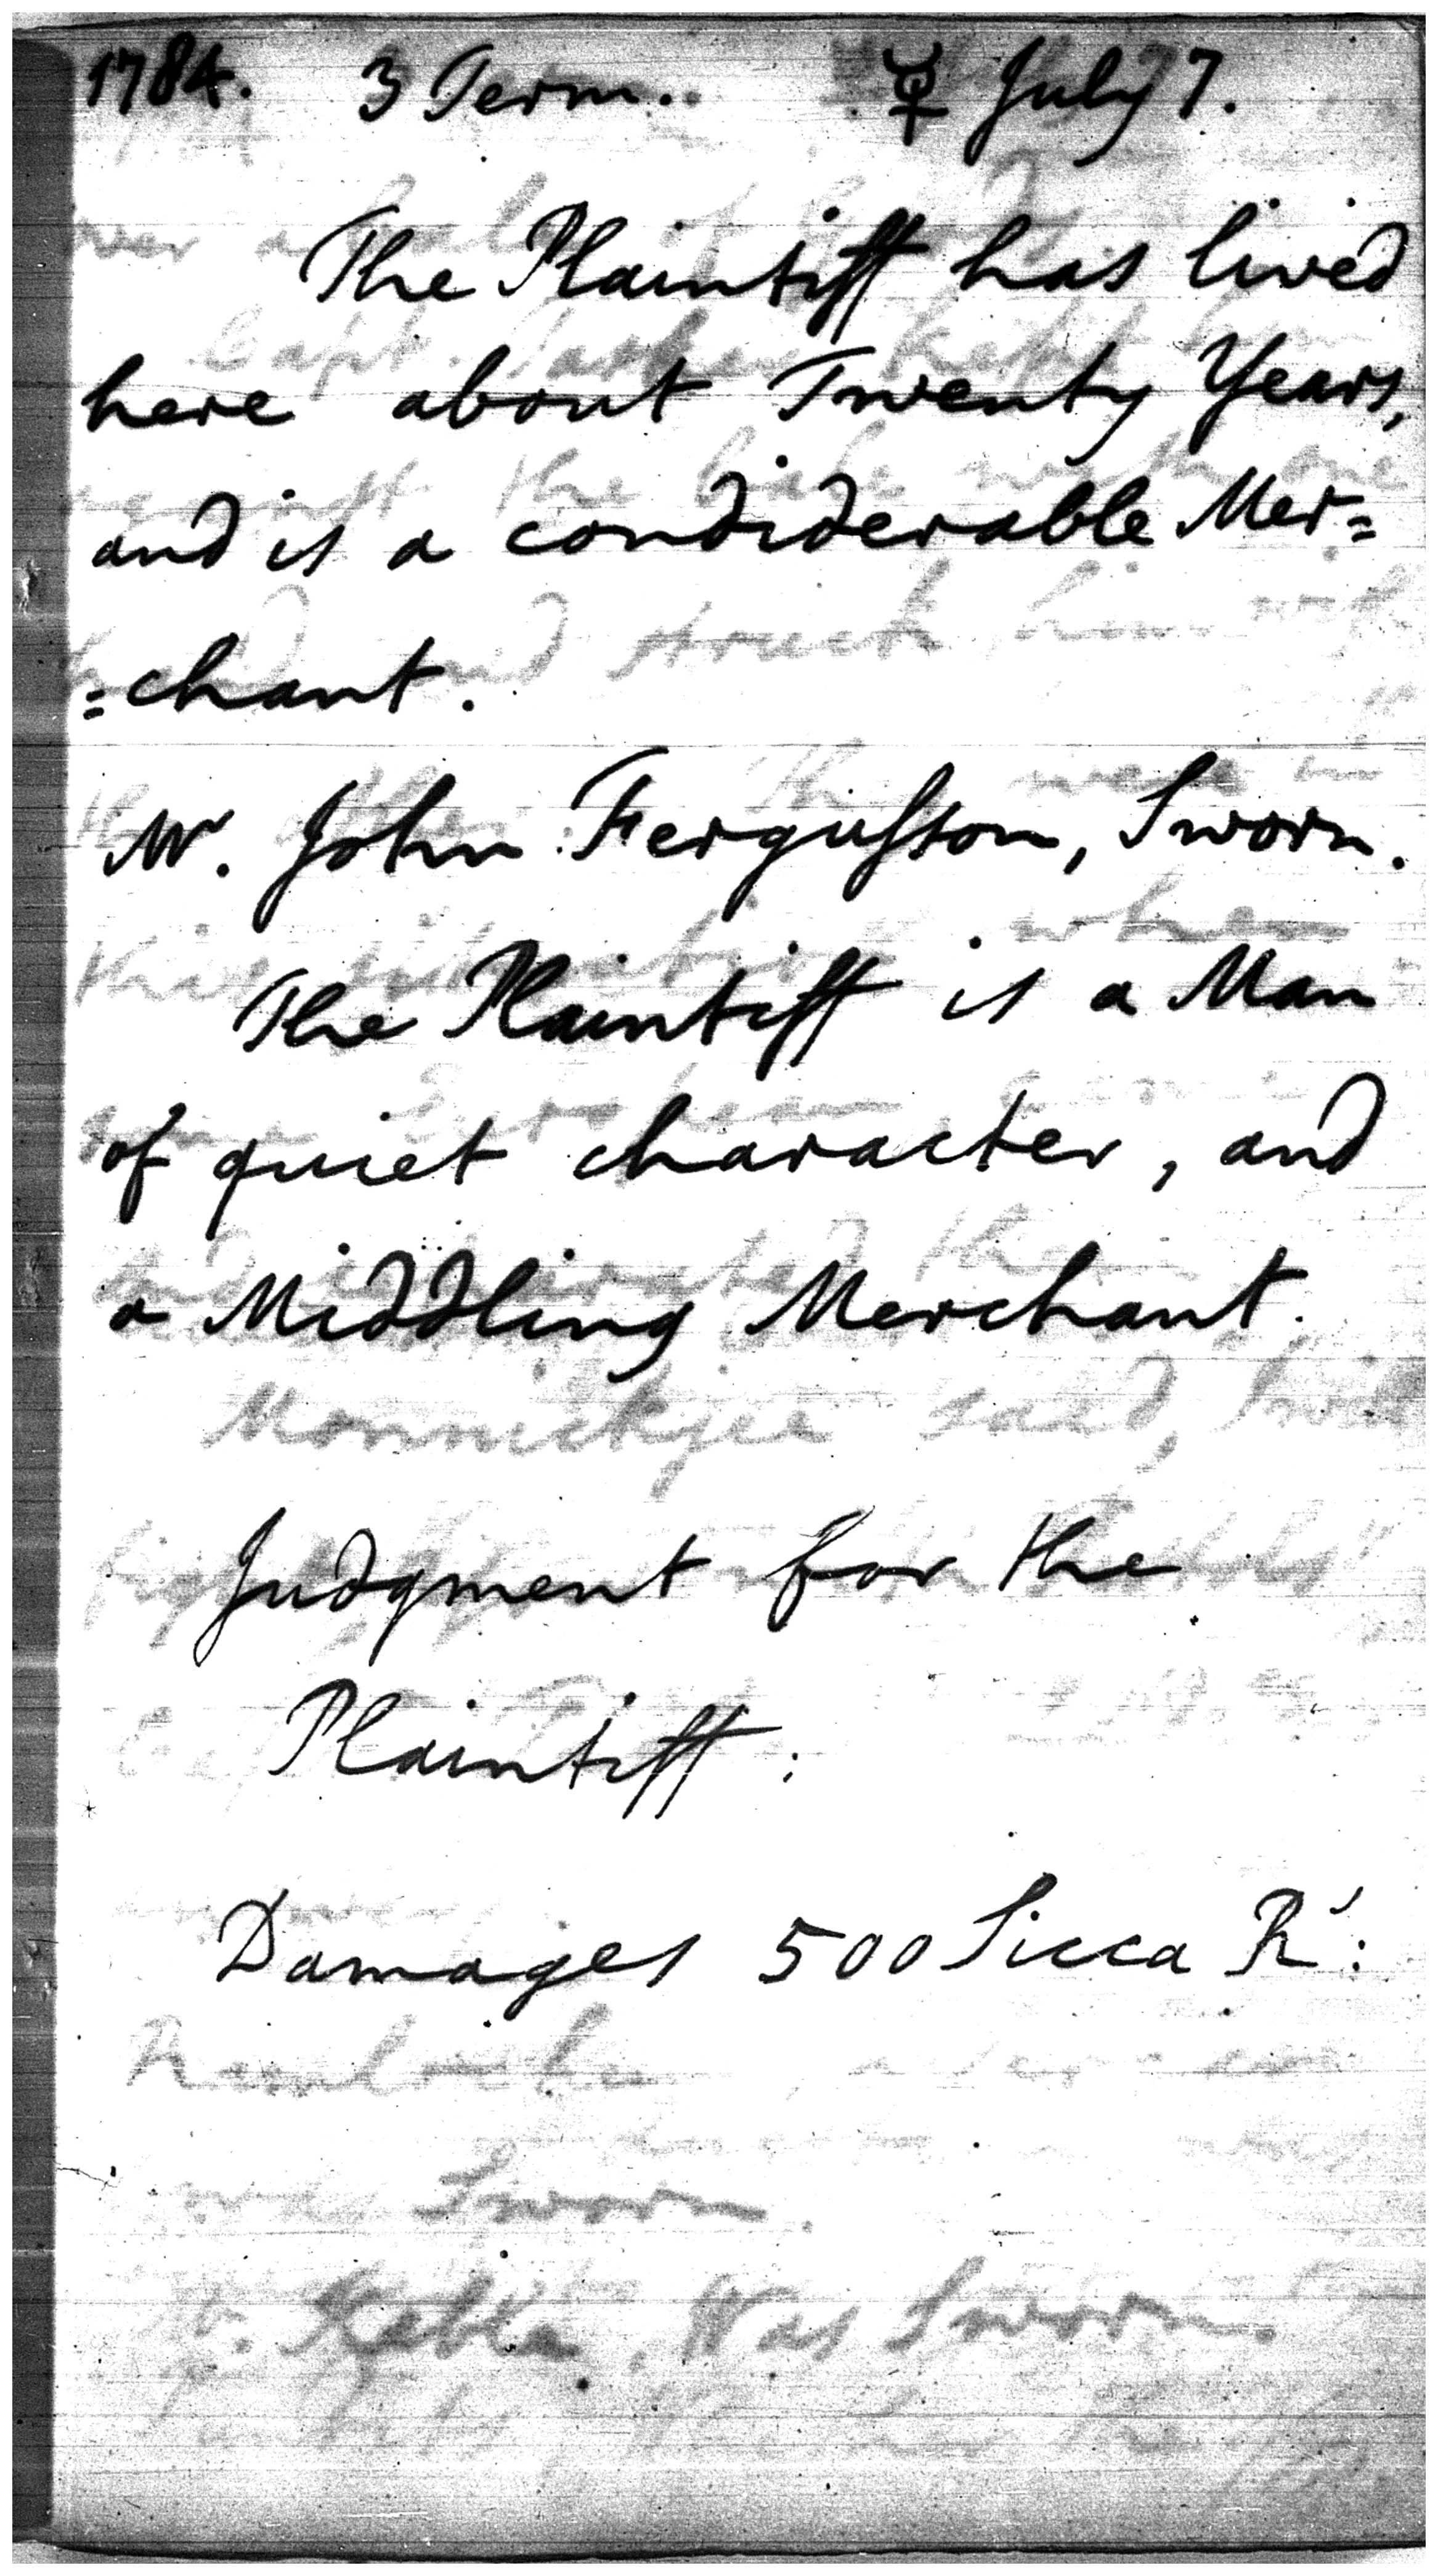 1784. 3 Term. ☿ July 7.
The Plaintiff has lived
here about Twenty Years,
and is a condiderable Mer=
=chant.
Mr. John Ferguſson, Sworn.
The Plaintiff is a Man
of quiet character, and
a Middling Merchant.
Judgment for the
Plaintiff:
Damages 500 Sicca Rs: